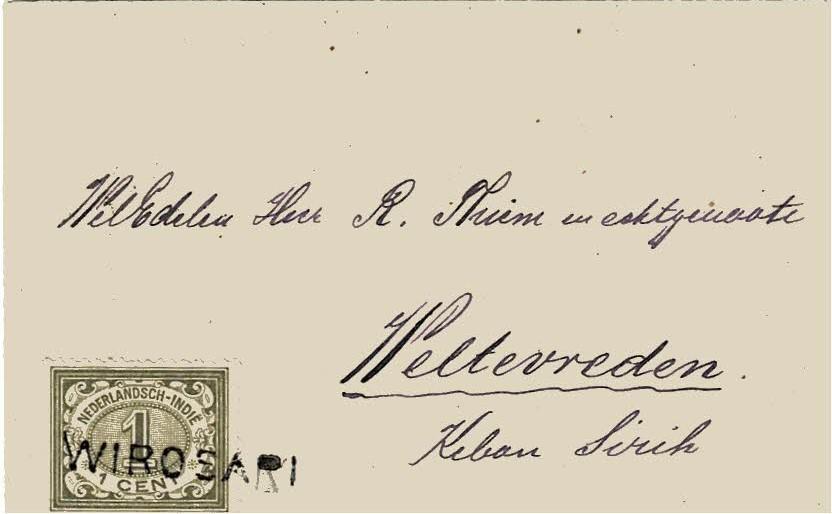 WelEdelen Heer R. Thiem en echtgenoote
Weltevreden.
Kebon Sirih
NEDERLANDSCH-INDIË
1
WIROSARI
1 CENT